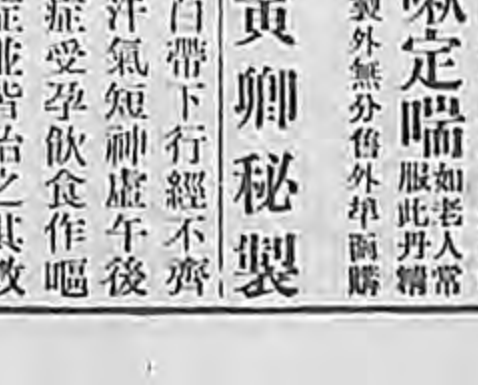 定喘
如老人常
服此丹精
外無分售外埠函購
黃卿秘製
白帶下行經不齊
汗氣短神虛午後
症受孕飲食作嘔
症並皆治之其效